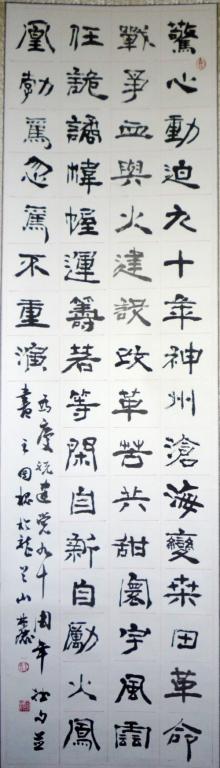 驚心動迫九十年神州滄海變桒田革命
戰爭血與火建設改革苦共甜寰宇風雲
任詭譎帷幄運籌若等閑自新自勵火鳳
凰勃焉忽焉不重演
為慶祝建党九十周年
書之